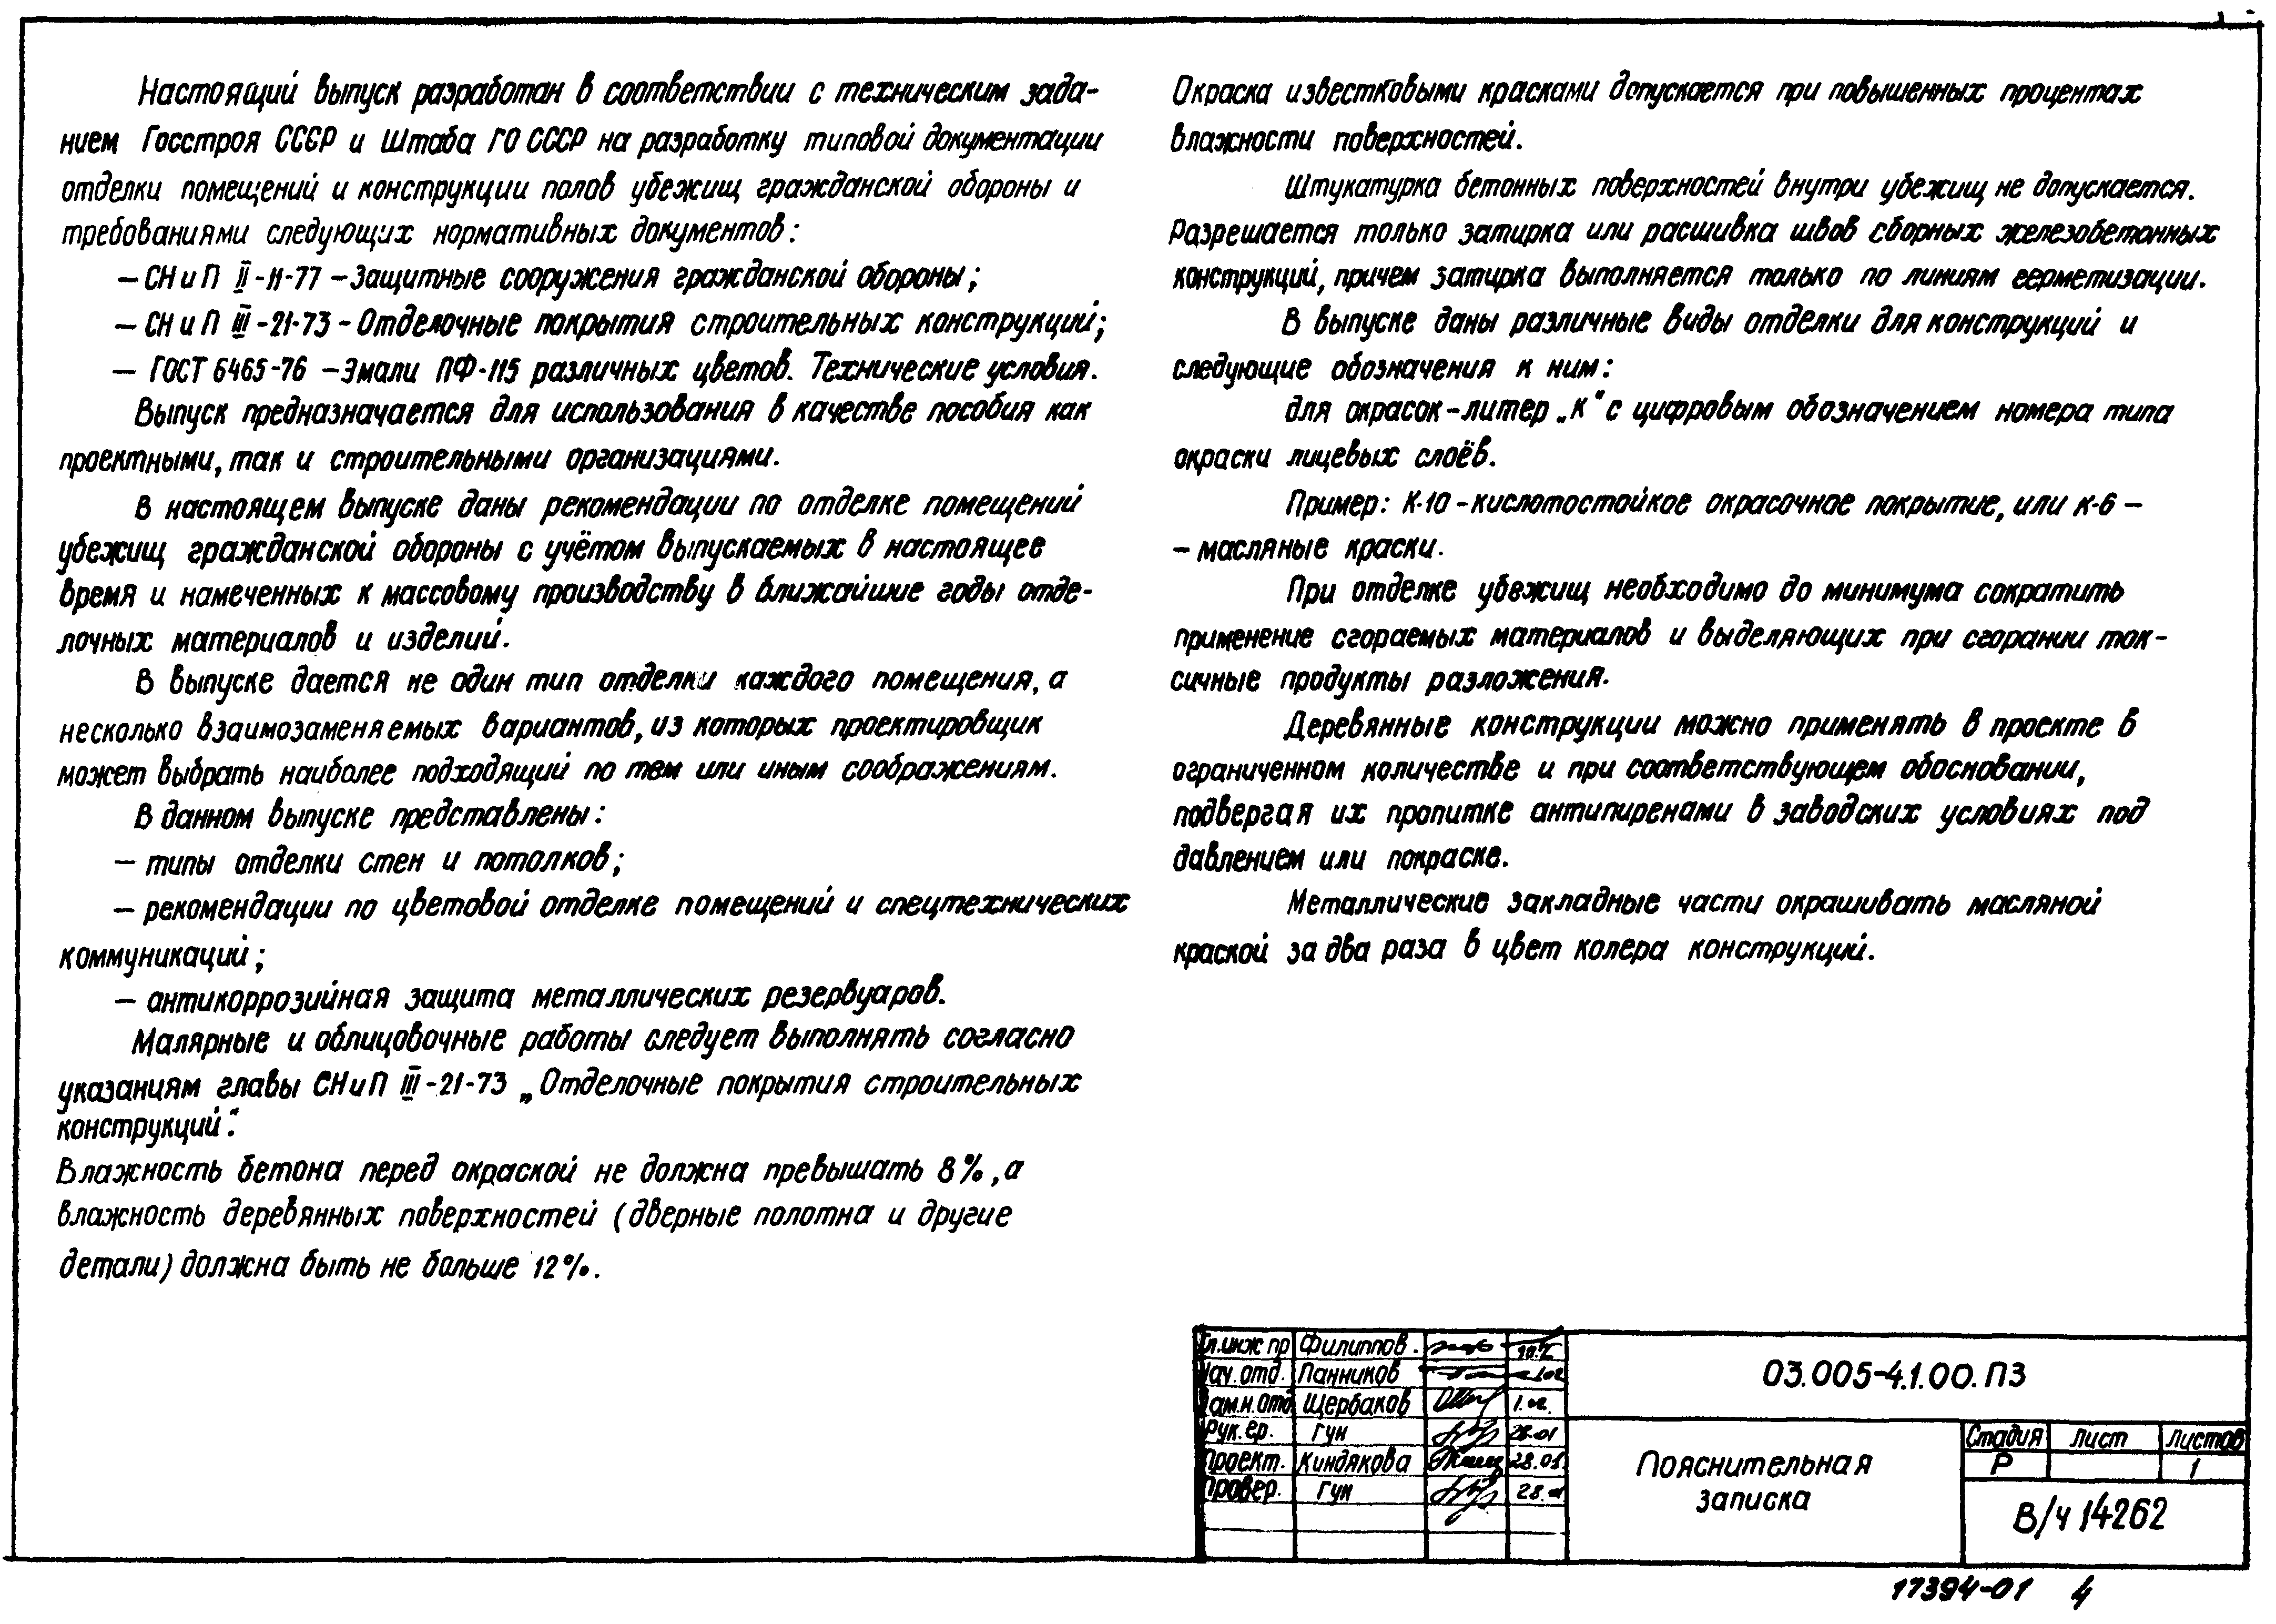 Настоящий выпуск разработан в соответствии с техническим зада-
нием Госстроя СССР и Штаба ГО СССР на разработку типовой документации
отделки помещений и конструкции полов убежищ гражданской обороны и
требованиями следующих нормативных документов:
— СНиП II-11-77 — Защитные сооружения гражданской обороны;
— СНиП III-21-73 - Отделочные покрытия строительных конструкций;
— ГОСТ 6465-76 — Эмали ПФ-115 различных цветов. Технические условия.
Выпуск предназначается для использования в качестве пособия как
проектными, так и строительными организациями.
В настоящем выпуске даны рекомендации по отделке помещений
убежищ гражданской обороны с учётом выпускаемых в настоящее
время и намеченных к массовому производству в ближайшие годы отде-
лочных материалов и изделий.
В выпуске дается не один тип отделки каждого помещения, а
несколько взаимозаменяемых вариантов, из которых проектировщик
может выбрать наиболее подходящий по тем или иным соображениям.
В данном выпуске представлены:
— типы отделки стен и потолков;
— рекомендации по цветовой отделке помещений и спецтехнических
коммуникаций;
— антикоррозийная защита металлических резервуаров.
Малярные и облицовочные работы следует выполнять согласно
указаниям главы СНиП III-21-73 „Отделочные покрытия строительных
конструкций".
Влажность бетона перед окраской не должна превышать 8%, а
влажность деревянных поверхностей (дверные полотна и другие
детали) должна быть не больше 12%.
Окраска известковыми красками допускается при повышенных процентах
влажности поверхностей.
Штукатурка бетонных поверхностей внутри убежищ не допускается.
Разрешается только затирка или расшивка швов сборных железобетонных
конструкций, причем затирка выполняется только по линиям герметизации.
В выпуске даны различные виды отделки для конструкций и
следующие обозначения к ним:
для окрасок-литер „К" с цифровым обозначением номера типа
окраски лицевых слоёв.
Пример: К-10 - кислотостойкое окрасочное покрытие, или К-6 —
— масляные краски.
При отделке убежищ необходимо до минимума сократить
применение сгораемых материалов и выделяющих при сгорании ток-
сичные продукты разложения.
Деревянные конструкции можно применять в проекте в
ограниченном количестве и при соответствующем обосновании,
подвергая их пропитке антипиренами в заводских условиях под
давлением или покраске.
Металлические закладные части окрашивать масляной
краской за два раза в цвет колера конструкций.
Гл.инж пр Филиппов.
Нач.отд. Панников
Зам.н.отд Щербаков
Рук.гр. Гун 28.01
Проект. Киндякова 28.01
Провер. Гун 28.01
03.005-4.1.00.ПЗ
Пояснительная
записка
Стадия Лист Листов
Р 1
В/ч 14262
17394-01 4